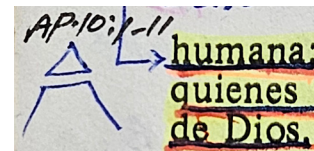 AP.10:1-11
humana:
quienes
de Dios.